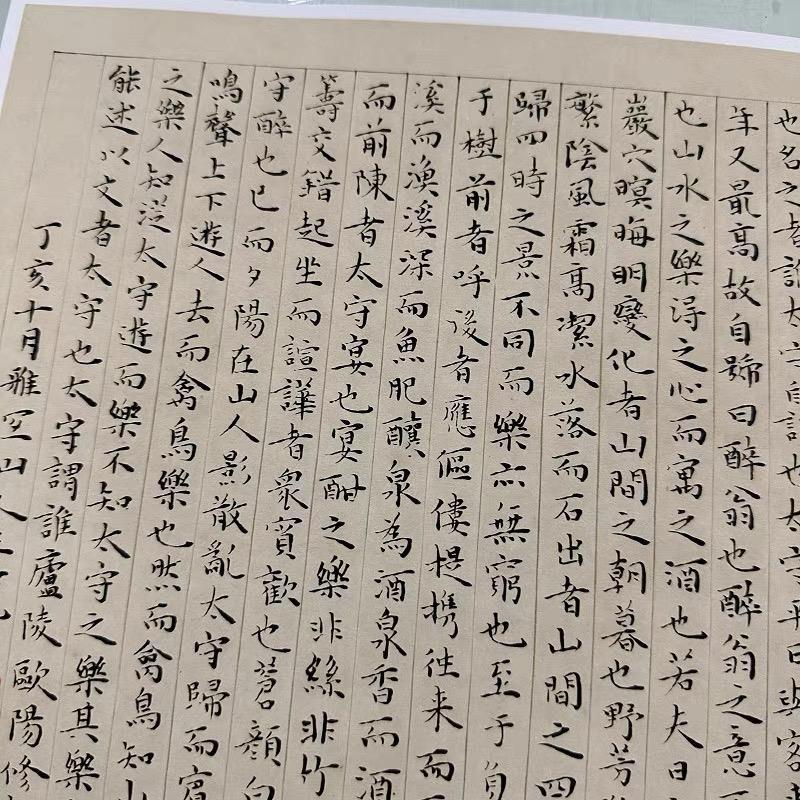 也名之者誰太守自謂也太守平日與客
年又最高故自號曰醉翁也醉翁之意
也山水之樂得之心而寓之酒也若夫日
巖穴暝晦明變化者山間之朝暮也野芳
繁陰風霜高潔水落而石出者山間之四
歸四時之景不同而樂亦無窮也至于負
于樹前者呼後者應傴僂提攜往來而
溪而漁溪深而魚肥釀泉為酒泉香而酒
而前陳者太守宴也宴酣之樂非絲非竹
籌交錯起坐而諠譁者眾賓歡也蒼顏白
守醉也已而夕陽在山人影散亂太守歸而賓
鳴聲上下遊人去而禽鳥樂也然而禽鳥知山
之樂人知從太守遊而樂不知太守之樂其樂
能述以文者太守也太守謂誰廬陵歐陽修
丁亥十月雅山人